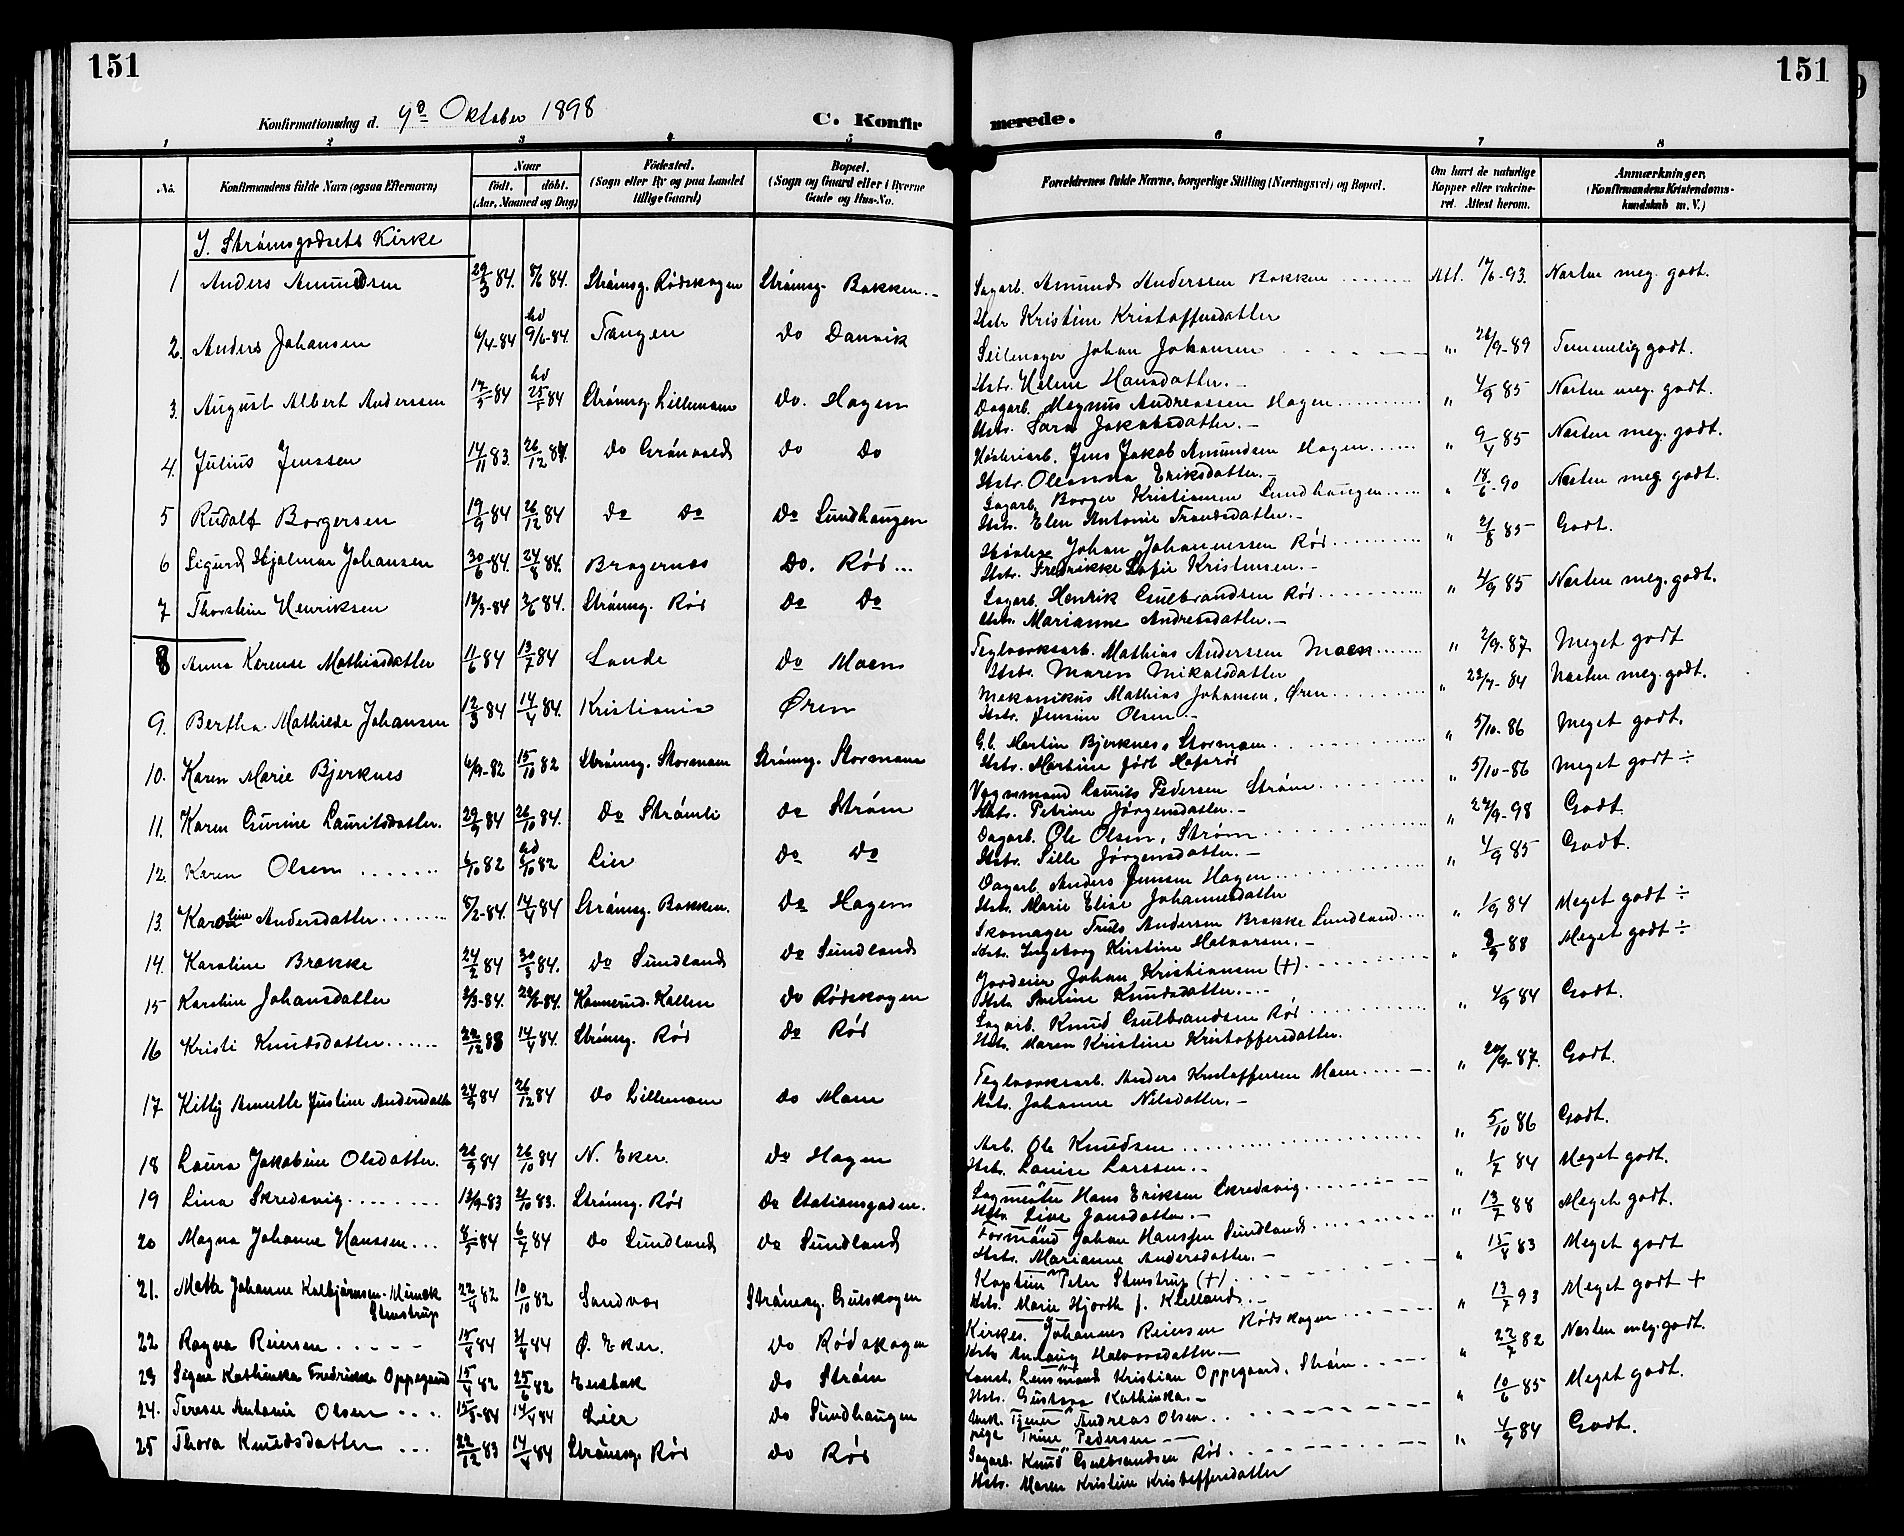 151
151
Konfirmationsdag d. 9de Oktober 1898
C. Konfir
merede.
1 2 3 4 5 6 7 8
No. Konfirmandens fulde Navn (ogsaa Efternavn) Naar født. døbt. (Aar, Maaned og Dag) Fødested. (Sogn eller By og paa Landet tillige Gaard) Bopæl. (Sogn og Gaard eller i Byerne Gade og Hus-No. Forældrenes fulde Navne, borgerlige Stilling (Næringsvei) og Bopæl. Om havt de naturlige Kopper eller vakcineret. Attest herom. Anmærkninger. (Konfirmandens Kristendomskundskab m. V.)
I. Strømsgodsets Kirke
1 Anders Amundsen 29/3 84. 8/6 84. Strømsg. Rødskogen Strømsg. Bakken Sagarb. Amunds Anderssen Bakken Att. 12/6-93. Næsten meg. godt.
Hstr. Kristine Kristoffersdatter
2. Anders Johansen 6/4-84 hd 9/6-84. Tangen do Danvik Seilmager Johan Johansen " 26/9-89 Temmelig godt.
Hstr. Helene Hansdatter.
3. August Albert Anderssen 12/3 84 hd 25/5 84 Strømsg. Lillemoen do. Hagen Dagarb. Magnus Andreassen Hagen " 4/9 85 Næsten meg. godt.
Hstr. Sara Jakobsdatter.
4. Julius Jenssen 14/11 83. 26/12 84. do Grønvold do do Høvleriarb. Jens Jakob Amundsen Hagen " 9/4 85 Næsten meg. godt.
Hstr. Oleanna Eriksdatter.
5 Rudolf Borgersen 19/9 84 26/12 84 do do do Sundhaugen Sagarb. Borger Kristiansen Sundhaugen " 18/6-90 Næsten meg. godt
Hstr. Elen Antonie Trondsdatter.
6 Sigurd Hjalmar Johansen 30/6 84. 24/8 84. Bragernæs do. Rød Johan Johannessen Rød " 2/8 85 Godt.
Hstr. Fredrikke Sofie Kristensen.
7 Thorstein Henriksen 12/3-84 2/6 84. Strømsg. Rød do do Sagarb. Henrik Gulbrandsen Rød " 4/9 85 Næsten meg. godt.
Hstr. Marianne Andreasdatter.
8 Anna Kerense Mathiasdatter 11/6 84 13/7 84 Sande do Moen Teglværksarb. Mathias Anderssen Moen " 2/9-87 Meget godt
Hstr. Maren Mikalsdatter
9. Bertha Mathilde Johansen 12/3 84 14/4 84. Kristiania Øren Mekanikus Mathias Johansen, Øren " 22/7-84 Næsten meg. godt.
Hstr. Jensine Olsen.
10. Karen Marie Bjerknes 6/9-82 15/10 82 Strømsg. Stormoen Strømsg. Stormoen G.b. Martin Bjerknes, Stormoen " 5/10-86 Meget godt.
Hstr. Martine født Hofsrød
11. Karen Gurine Lauritsdatter. 29/9 84 26/10 84. do Strømli do Strøm Vognmand Laurits Pedersen Strøm " 5/10-86 Meget godt ÷
Hstr. Petrine Jørgensdatter.
12. Karen Olsen 6/10 82 hd 8/10 82 Lier do do Dagarb. Ole Olsen, Strøm " 27/9-98 Godt.
Hstr. Sille Jørgensdatter.
13. Karoline Andersdatter 8/2-84. 14/4 84 Strømsg. Bakken. do Hagen Dagarb. Anders Jensen Hagen " 4/9 85 Godt.
Hstr. Marie Elise Johannesdatter
14. Karoline Brække 24/2 84 30/3 84. do Sundland do Sundland Skomager Truls Andersen Brække Sundland " 1/9 84 Meget godt ÷
Hstr. Ingeborg Kristine Halvorsen.
15 Karstine Johansdatter 2/3-84. 22/6-84. do Rødskogen Jordeier Johan Kristiansen (+) " 8/9 88 Meget godt ÷
Hstr. Knudsdatter.
16 Kristi Knudsdatter 22/12 83 14/4 84. Strømsg. Rød do Rød Sagarb. Knud Gulbrandsen Rød " 4/9 84 Godt.
Hstr. Maren Kristine Kristoffersdatter.
17 Kitty Annette Justine Andersdatter 24/9 84 26/12 84 do Lillemoen do Moen Teglværksarb. Anders Kristoffersen Moen " 20/9-87. Godt.
Hstr. Johanne Nilsdatter.
18 Laura Jakobine Olsdatter. 26/9 84 26/10 84 N. Eker. do Hagen Arb. Ole Knudsen " 5/10 86 Godt.
Hstr. Louise Larssen.
19 Lina Skredsvig 12/9-83 2/10 83. Strømsg. Rød do Stationsgaden. Sagmester Hans Eriksen Skredsvig " 1/7 84 Meget godt.
Hstr. Live Jonsdatter.
20 Magna Johanne Hanssen 8/5 84 6/7 84 do Sundland do Sundland Formand Johan Hanssen Sundland " 13/7 88 Meget godt.
Hstr. Marianne Andersdatter.
21. Johanne Stenstrup 22/4 82 10/10 82 Sandvær Strømsg. Gulskogen Kaptein Peter Stenstrup (+) " 15/8 83 Meget godt
Hstr. Marie Hjorth f. Kielland.
22 Ragna Reiersen 15/4 84 31/8 84 Ø. Eker. do Rødskogen Kirkes. Johannes Reiersen Rødskogen " 13/7 93 Meget godt +
Hstr. Anlaug Halvorsdatter
23 Signe Kathinka Fredrikke Oppegaard 15/4 82 25/6 82 Enebak do Strøm Const. Lensmand Kristian Oppegaard, Strøm " 22/7 82 Næsten meg. godt.
Hstr. Gustava Kathinka.
24. Terese Antonie Olsen 15/3-84 14/4 84 Lier do Sundhaugen Tjener Andreas Olsen " 10/6 85 Meget godt.
Trine Pedersen
25 Thora Knudsdatter 22/12 83 14/4 84 Strømsg. Rød do Rød Sagarb. Knud Gulbrandsen Rød " 4/9 84 Godt.
Hstr. Maren Kristine Kristoffersdatter